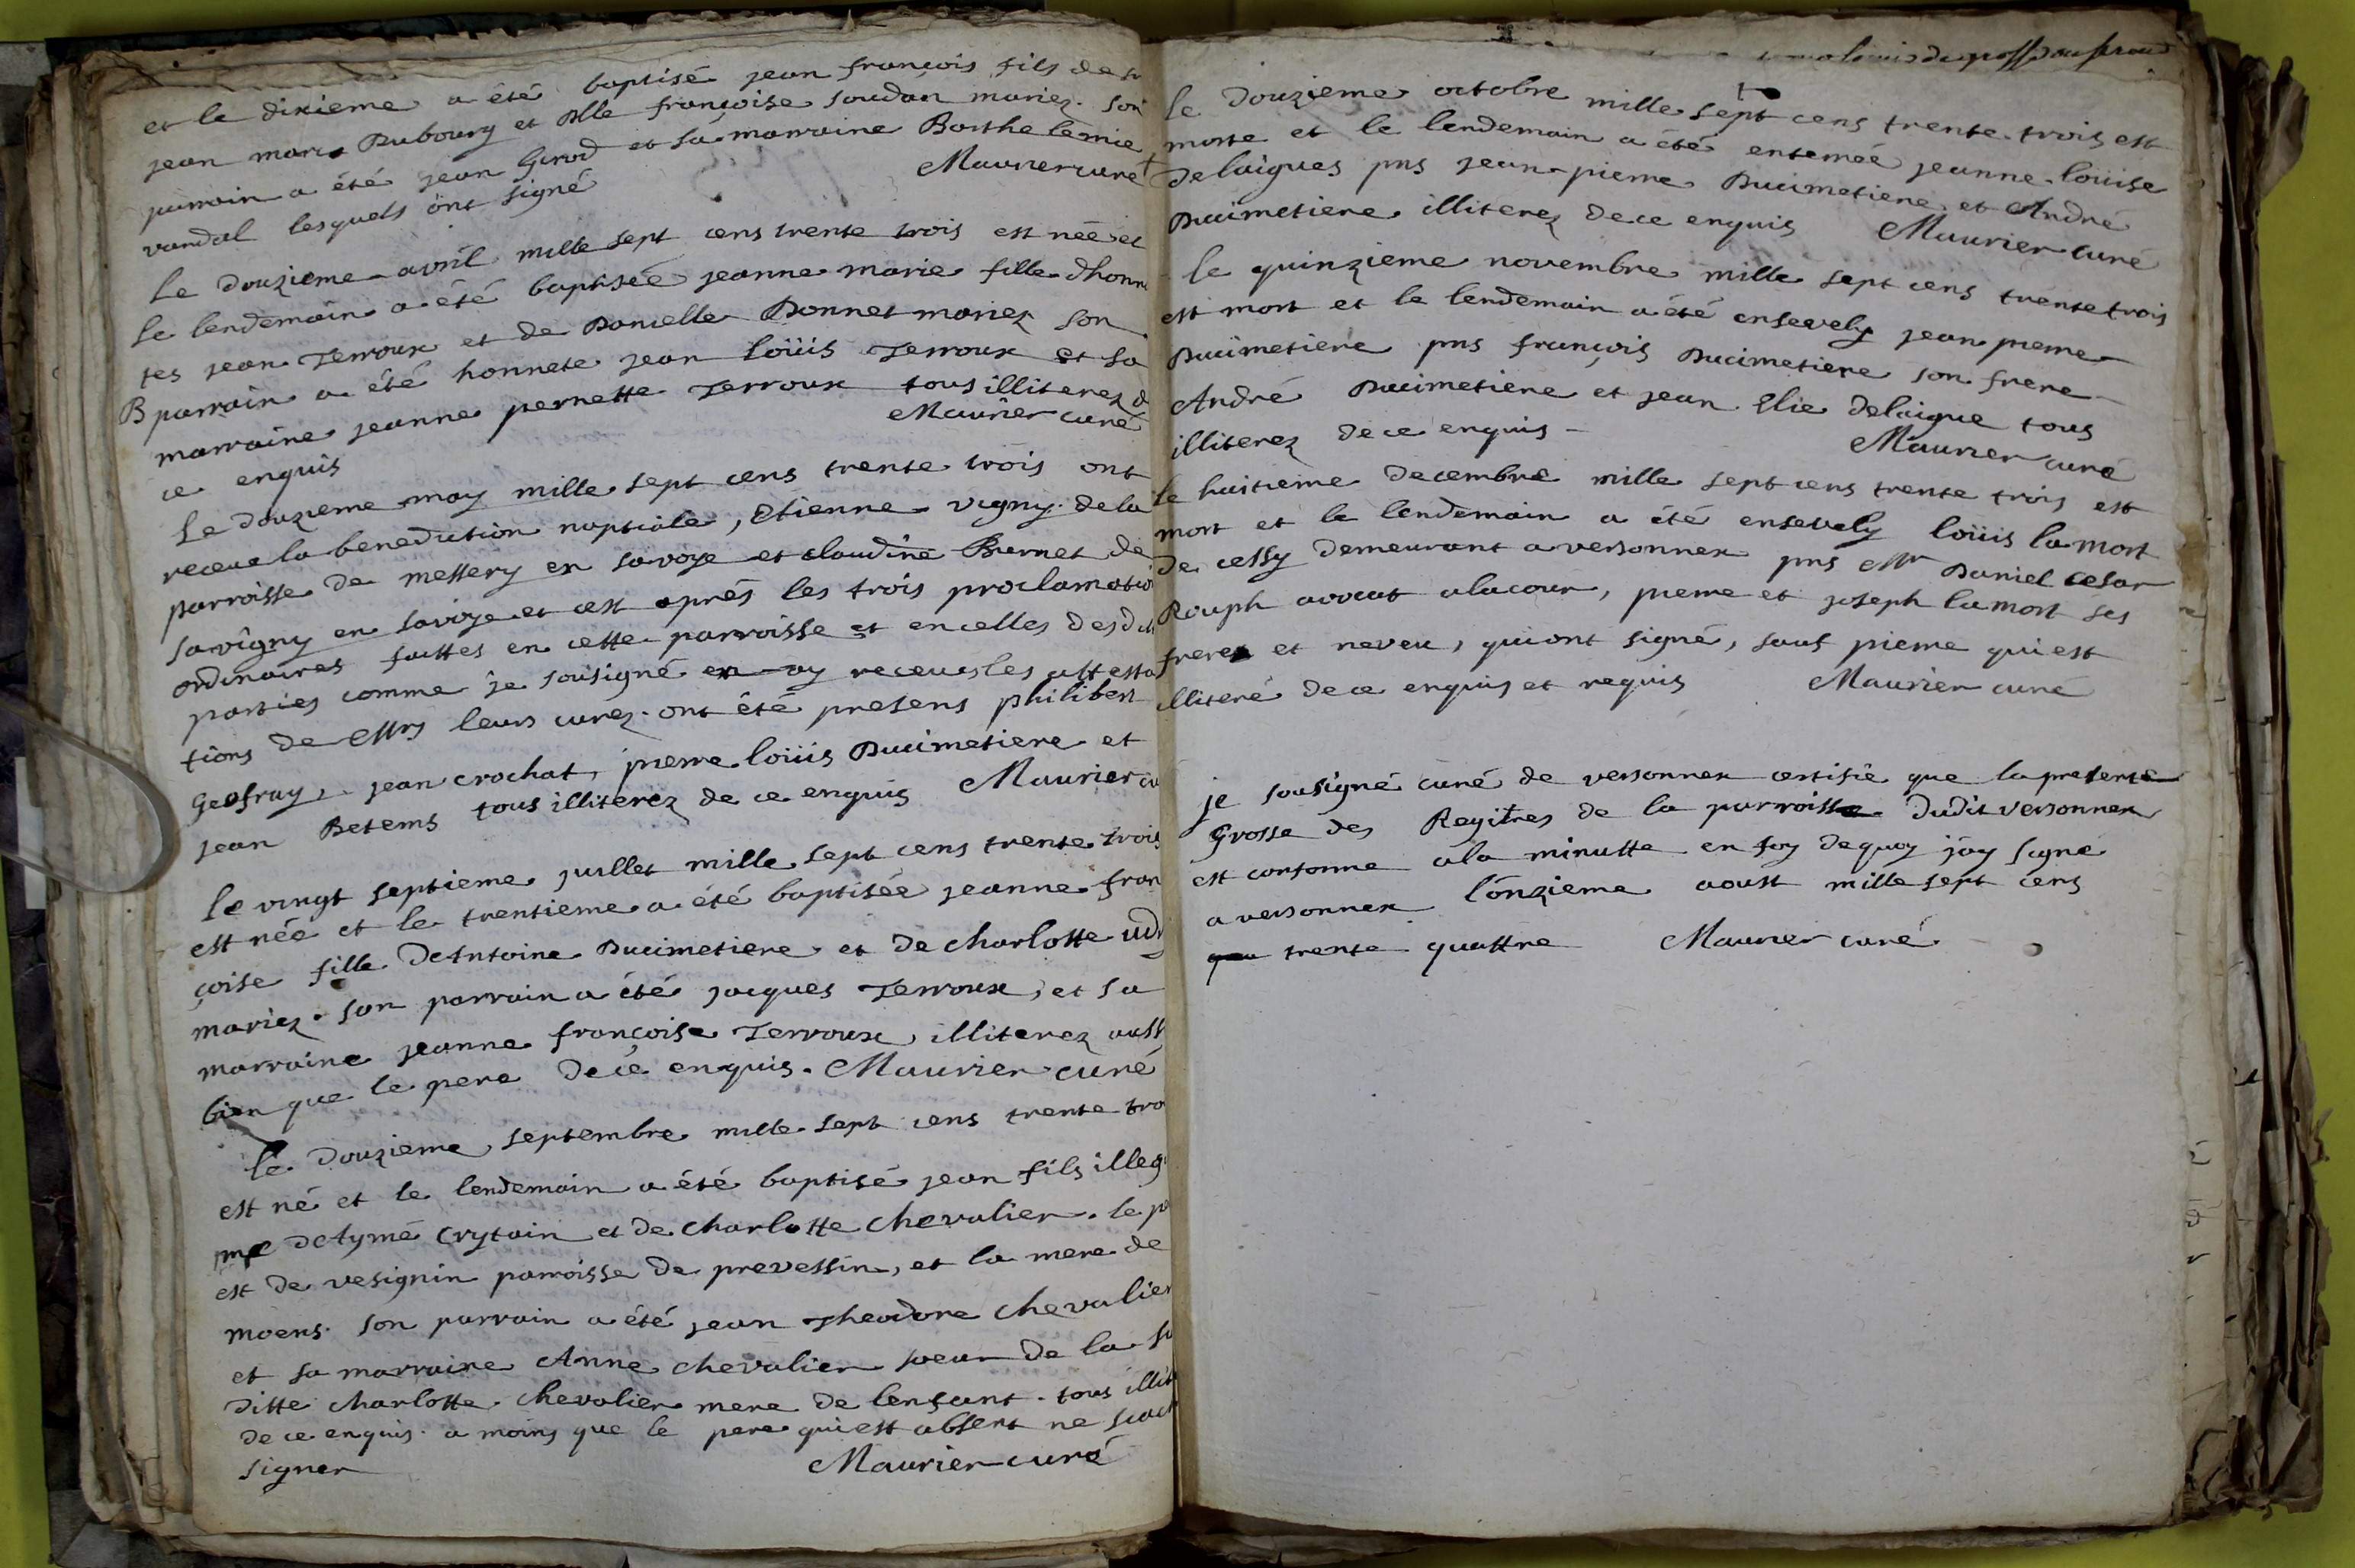 et le dixieme a été baptisé jean françois fils de
jean marc Dubourg et Dlle françoise soudan mariez. son
parrain a été jean Girod et sa marraine Barthelemie
vandal lesquels ont signé Maurier curé
Le douzieme avril mille sept cens trente trois est néé et
le lendemain a été baptisée jeanne marie fille dhonn
tes jean Terroux et de Dancelle Donnet mariez son
B parrain a été honnete jean loüis Terroux et sa
marraine jeanne pernette Terroux tous illiterez d
ce enquis Maurier curé
Le douzieme may mille sept cens trente trois ont
receue la benediction nuptiale, Etienne vigny de la
parroisse de messery en savoye et claudine Burnet de
savigny en savoye et cest aprés les trois proclamatio
ordinaires faittes en cette parroisse et en celles desd
parties comme je sousigné en ay receus les attesta
tions de Mrs leurs curez. ont été presens philibert
Geofray, jean crochat, pierre loüis Ducimetiere et
jean Betems tous illiterez de ce enquis Maurier cu
le vingt septieme juillet mille sept cens trente trois
est née et le trentieme a été baptisée jeanne fran
çoise fille dAntoine Ducimetiere et de charlotte
mariez. son parrain a été jacques Terroux, et sa
marraine jeanne françoise Terroux, illiterez auss
bien que le pere de ce enquis. Maurier curé
le douzieme septembre mille sept cens trente tro
est né et le lendemain a été baptisé jean fils illeg
me dAymé crytain et de charlotte chevalier. le p
est de vesignin parroisse de prevessin, et la mere de
moëns. son parrain a été jean Theodore chevalier
et sa marraine Anne chevalier soeur de la su
ditte charlotte chevalier mere de lenfant. tous illit
de ce enquis. a moins que le pere qui est absent ne scach
signer Maurier curé
le douzieme octobre mille sept cens trente trois est
morte et le lendemain a été enterreé jeanne loüise
Delaigues pns jean-pierre Ducimetiere et André
Ducimetiere illiterez de ce enquis Maurier curé
le quinzieme novembre mille sept cens trente trois
est mort et le lendemain a été ensevely jean pierre
Ducimetiere pns françois Ducimetiere son frere
André Ducimetiere et jean Elie Delaigue tous
illiterez de ce enquis - Maurier curé
le huitieme decembre mille sept cens trente trois est
mort et le lendemain a été ensevely loüis lamort
de cessy demeurant a versonnex pns Mr Daniel cesar
Rouph avocat a la cour, pierre et joseph lamort ses
freres et neveu, qui ont signé, sauf pierre qui est
illiteré de ce enquis et requis Maurier curé
je sousigné curé de versonnex certifie que la presente
Grosse des Regitres de la parroisse dudit versonnex
est conforme a la minutte en foy de quoy jáy signé
a versonnex lónzieme aoust mille sept cens
trente quattre Maurier curé